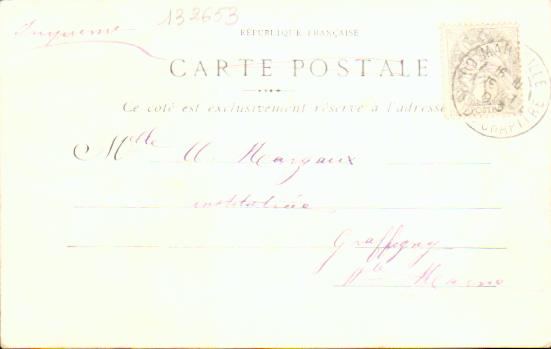 132653
Imprimé
RÉPUBLIQUE FRANÇAISE
CARTE POSTALE
Ce côté est exclusivement réservé à l'adresse
Melle Margaux
institutrice
Graffigny
Hte Marne
MARSEILLE
CHAPITRE